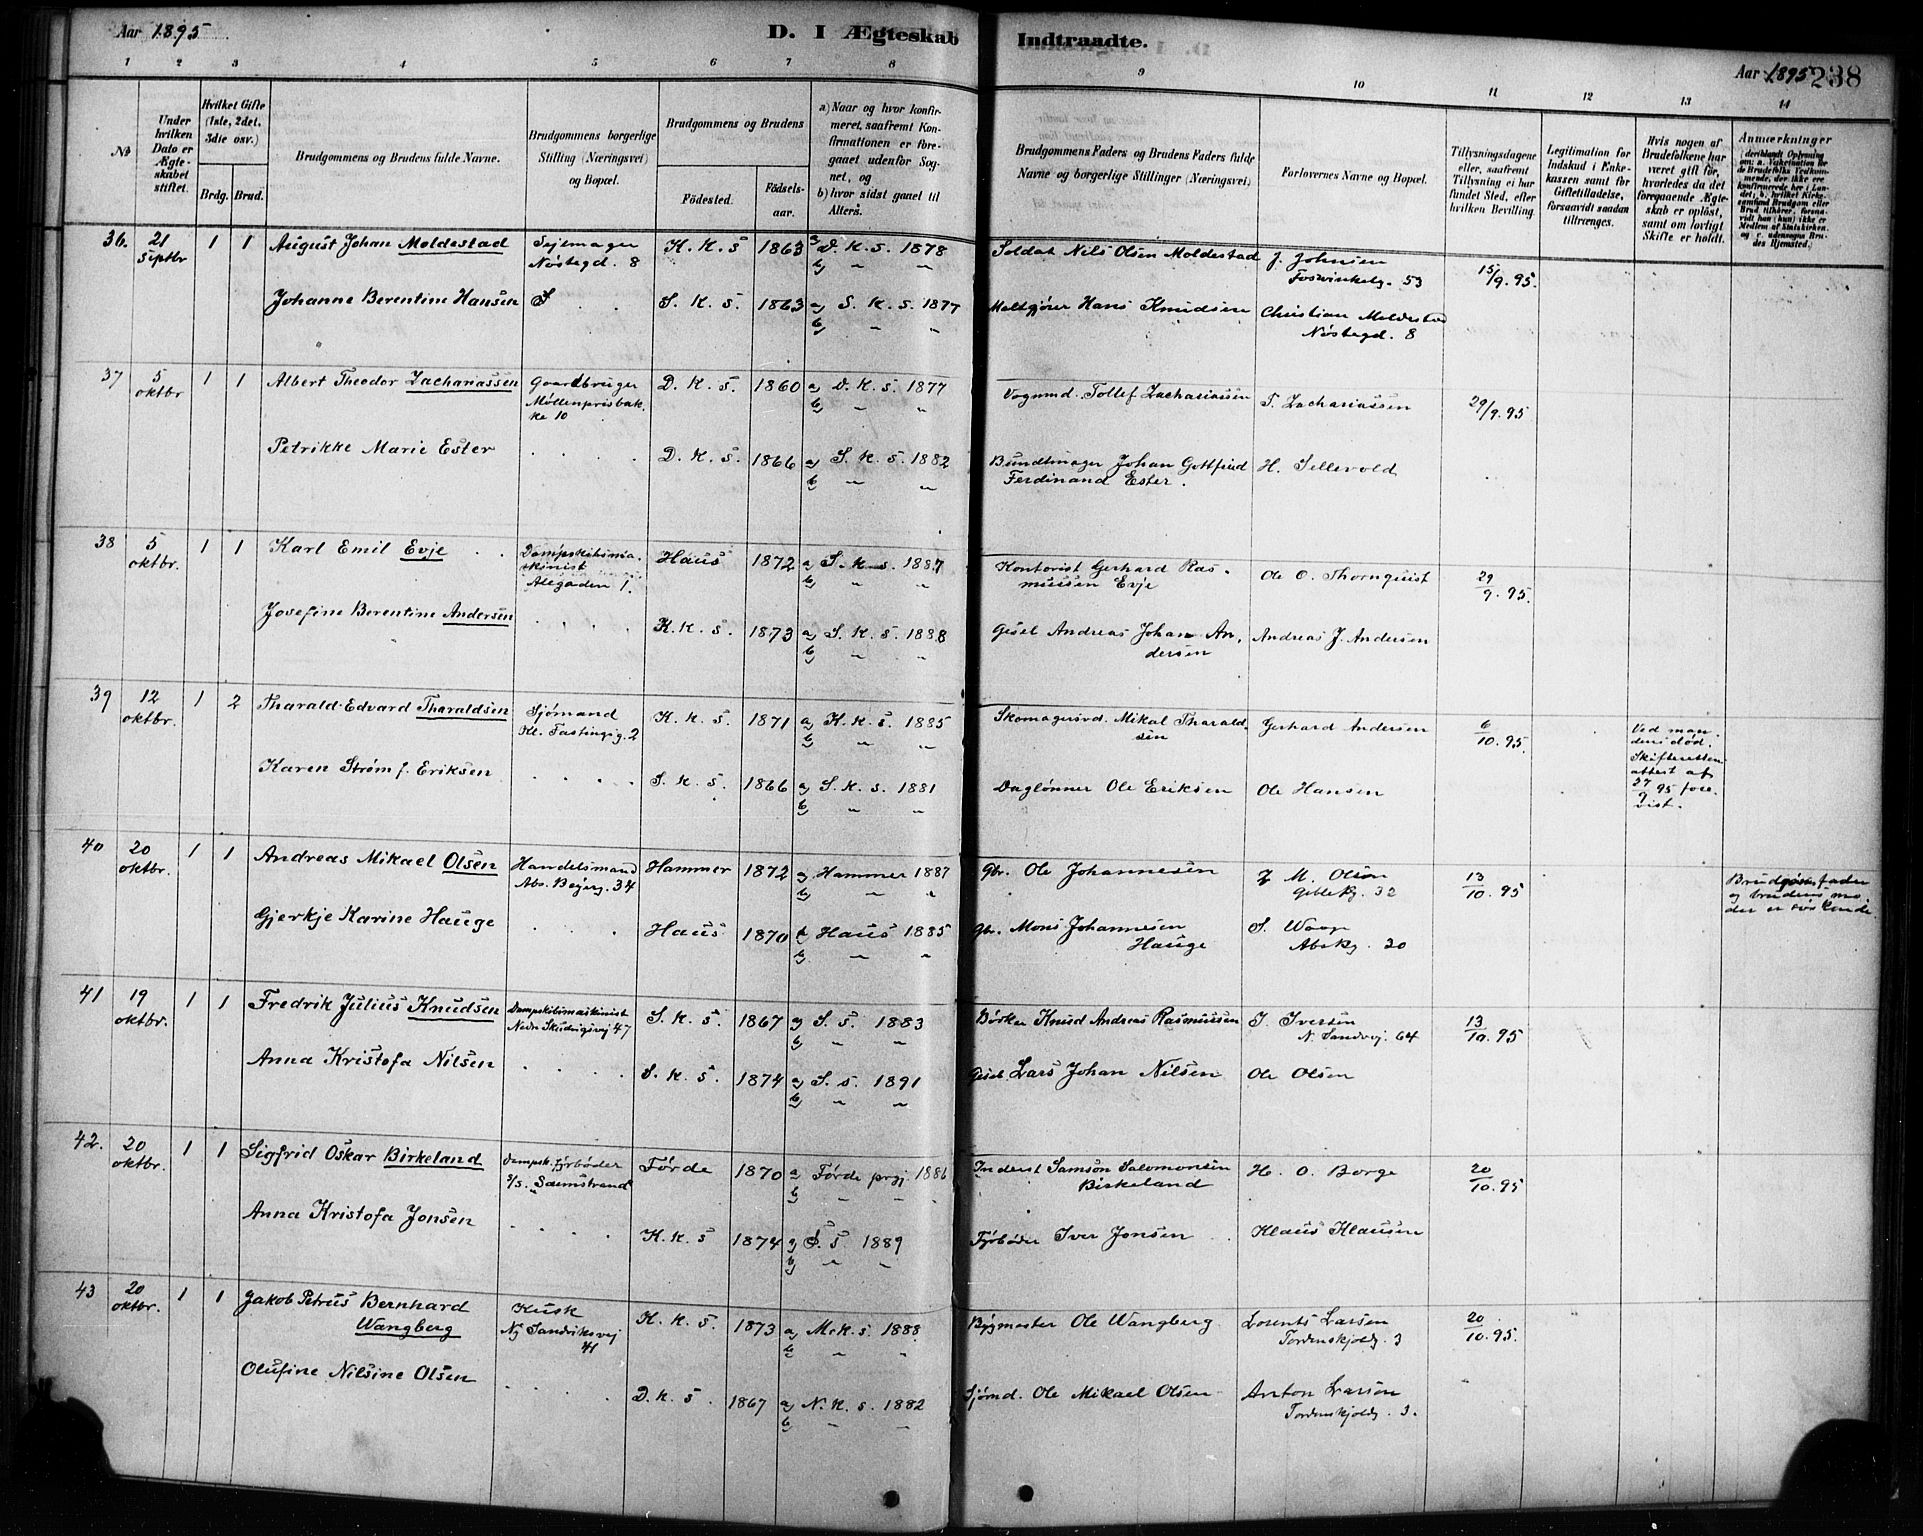 Aar 1895
D. I Ægteskab
Indtraadte.
Aar 1895
238
1 2 3 4 5 6 7 8 9 10 11 12 13 14
No
Under hvilken Dato er Ægteskabet stiftet.
Hvilket Gifte (1ste, 2det, 3die osv.)
Brdg. Brud.
Brudgommens og Brudens fulde Navne.
Brudgommens borgerlige Stilling (Næringsvei) og Bopæl.
Brudgommens og Brudens
Födested.
Födselsaar.
a) Naar og hvor konfirmeret, saafremt Konfirmationen er foregaaet udenfor Sognet, og
b) hvor sidst gaaet til Alters.
Brudgommens Faders og Brudens Faders fulde Navne og borgerlige Stillinger (Næringsvei)
Forlovernes Navne og Bopæl.
Tillysningsdagene eller, saafremt Tillysning ei har fundet Sted, efter hvilken Bevilling.
Legitimation for Indskud i Enkekassen samt for Giftetilladelse, forsaavidt saadan tiltrænges.
Hvis nogen af Brudefolkene har været gift før, hvorledes da det foregaaende Ægteskab er opløst, samt om lovligt Skifte er holdt.
Anmærkninger
36. 21 septbr 1 1 August Johan Moldestad Sejlmager Nøstegd. 8 K. K. s 1863 a D. K. s. 1878 b " " Soldat Nils Olsen Moldestad J. Johnsen Foswinkelg. 53 15/9. 95.
Johanne Berentine Hansen S. K. s. 1863 a S. K. s. 1877 b " " Maltgjører Hans Knudsen Christian Moldestad Nøstegd. 8
37 5 oktbr 1 1 Albert Theodor Zachariassen Gaardbruger Møllenprisbakke 10 D. K. s. 1860 a D. K. s. 1877 b " " Vognmd. Tollef Zachariassen T. Zachariassen 29/9. 95
Petrikke Marie Ester D. K. s. 1866 a S. K. s. 1882 b " " Bundtmager Johan Gottfried Ferdinand Ester. H. Sellevold
38 5 oktbr. 1 1 Karl Emil Evje Dampskibsmaskinist Alegaden 1. Haus 1872 a S. K. s. 1887 b " " Kontorist Gerhard Rasmussen Evje Ole O. Thornquist 29/9. 95.
Josefine Berentine Andersen K. K. s. 1873 a S. K. s. 1888 b " " Gisel Andreas Johan Andersen Andreas J. Andersen
39 12 oktbr. 1 2 Tharald Edvard Tharaldsen Sjømand Kl. Fastingsg. 2 K. K. s. 1871 a K. K. s. 1885 b " " Skomagersvd. Mikal Tharaldsen Gerhard Andersen 6/10. 95. Ved mandens død. Skifterettens attest af 27/9 95 forevist.
Karen Strøm f. Eriksen S. K. s. 1866 a S. K. s. 1881 b " " Daglønner Ole Eriksen Ole Hansen
40 20 oktbr. 1 1 Andreas Mikael Olsen Handelsmand Abs. Beyerg. 34 Hammer 1872 a Hammer 1887 b " " Gbr. Ole Johannesen M. Olsen 32 13/10. 95 Brudgoms fader og brudens moder er søskende
Gjerkje Karine Hauge Haus 1870 a Haus 1885 b " " Gbr. Mons Johannesen Hauge S. Waage Absk.g. 20
41 19 oktbr. 1 1 Fredrik Julius Knudsen Dampskibsmaskinist 47 S. K. s. 1867 a S. s. 1883 b " " Bødker Knud Andreas Rasmussen I. Iversen N. Sandvj. 64 13/10. 95
Anna Kristofa Nilsen S. K. s. 1874 a S. s. 1891 b " " Gisel. Lars Johan Nilsen Ole Olsen
42. 20 oktbr. 1 1 Sigfrid Oskar Birkeland Dampsk.fyrbøder s/s. "Saemstrand" Førde 1870 a Førde prgj. 1886 b " " Inderst Samson Salomonsen Birkeland H. O. Borge 20/10. 95
Anna Kristofa Jonsen K. K. s 1874 a S. s 1889 b " " Fyrbøder Iver Jonsen Klaus Klausen
43 20 oktbr. 1 1 Jakob Petrus Bernhard Wangberg Kusk Ny Sandviksvej 41 K. K. s. 1873 a M. K. s. 1888 b " " Bygmester Ole Wangberg. Lorents Larsen Tordenskjoldg. 3 20/10. 95.
Olufine Nilsine Olsen D. K. s. 1867 a N. K. s. 1882 b " " Sjømd. Ole Mikael Olsen Anton Larsen Tordenskjoldg. 3.